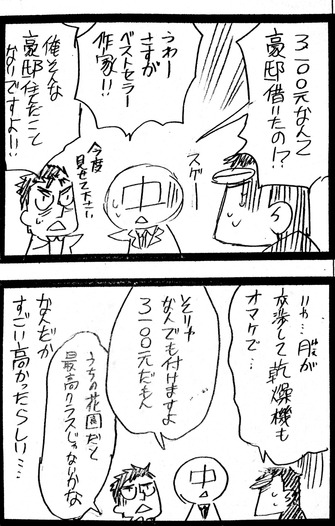 3100元なんて
豪邸借りたの!?
スゲー
うわー
さすが
ベストセラー
作家!!
今度
見せて下さい
俺そんな
豪邸住んだこと
ないですよ!!
中
いや…服が
オマケで…
乾燥機も
そりゃ
なんでも付けますよ
3100元だもん
うちの花園だと
最高クラスじゃないかな
なんだか
すごい高かったらしい…
中